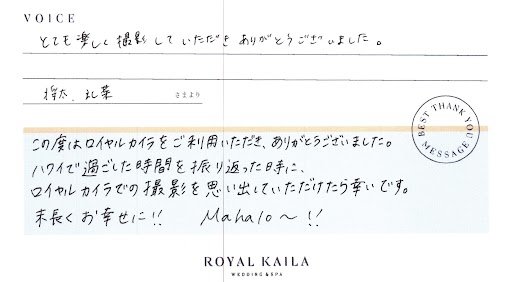 VOICE
とても楽しく撮影していただきありがとうございました。
将太、礼菜
さまより
BEST THANK YOU MESSAGE
この度はロイヤルカイラをご利用いただき、ありがとうございました。
ハワイで過ごした時間を振り返った時に、
ロイヤルカイラでの撮影を思い出していただけたら幸いです。
末長くお幸せに!! Mahalo〜!!
ROYAL KAILA
WEDDING & SPA